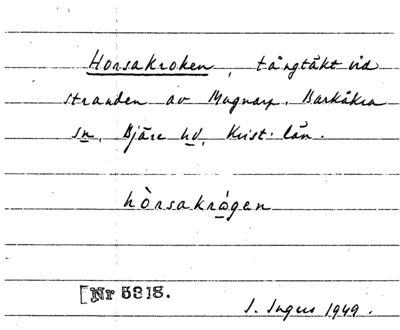 Horsakroken, tångtäkt vid
stranden av Magnarp. Barkåkra
sn, Bjäre hd, Krist. län.
hòrsakrågen
[Nr 5818.
I. Ingers 1949.